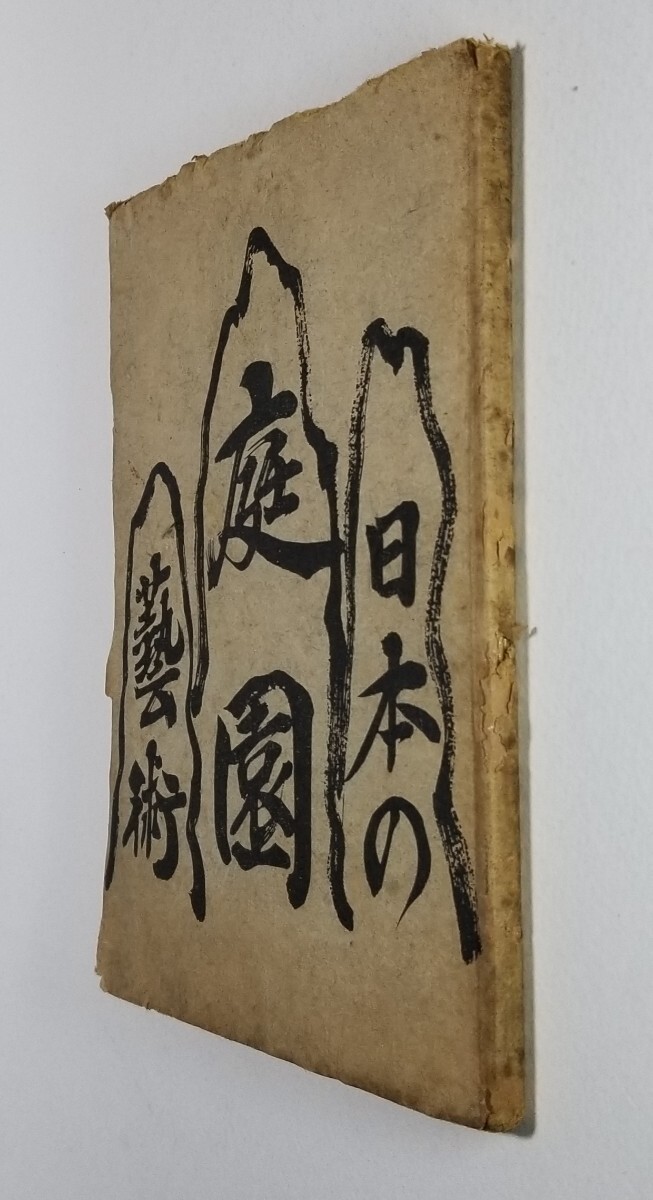 日本の
庭園
藝術